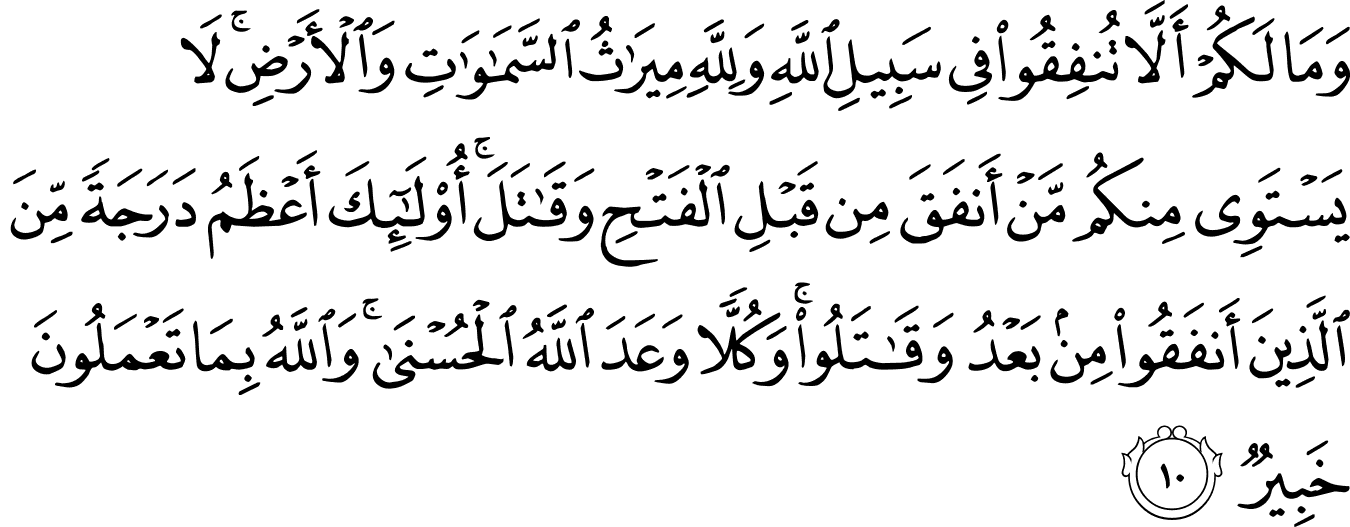 وَمَا لَكُمْ أَلَّا تُنفِقُوا۟ فِى سَبِيلِ ٱللَّهِ وَلِلَّهِ مِيرَٰثُ ٱلسَّمَٰوَٰتِ وَٱلْأَرْضِ ۚ لَا
يَسْتَوِى مِنكُم مَّنْ أَنفَقَ مِن قَبْلِ ٱلْفَتْحِ وَقَٰتَلَ ۚ أُو۟لَٰٓئِكَ أَعْظَمُ دَرَجَةً مِّنَ
ٱلَّذِينَ أَنفَقُوا۟ مِنۢ بَعْدُ وَقَٰتَلُوا۟ ۚ وَكُلًّا وَعَدَ ٱللَّهُ ٱلْحُسْنَىٰ ۚ وَٱللَّهُ بِمَا تَعْمَلُونَ
خَبِيرٌ ١٠